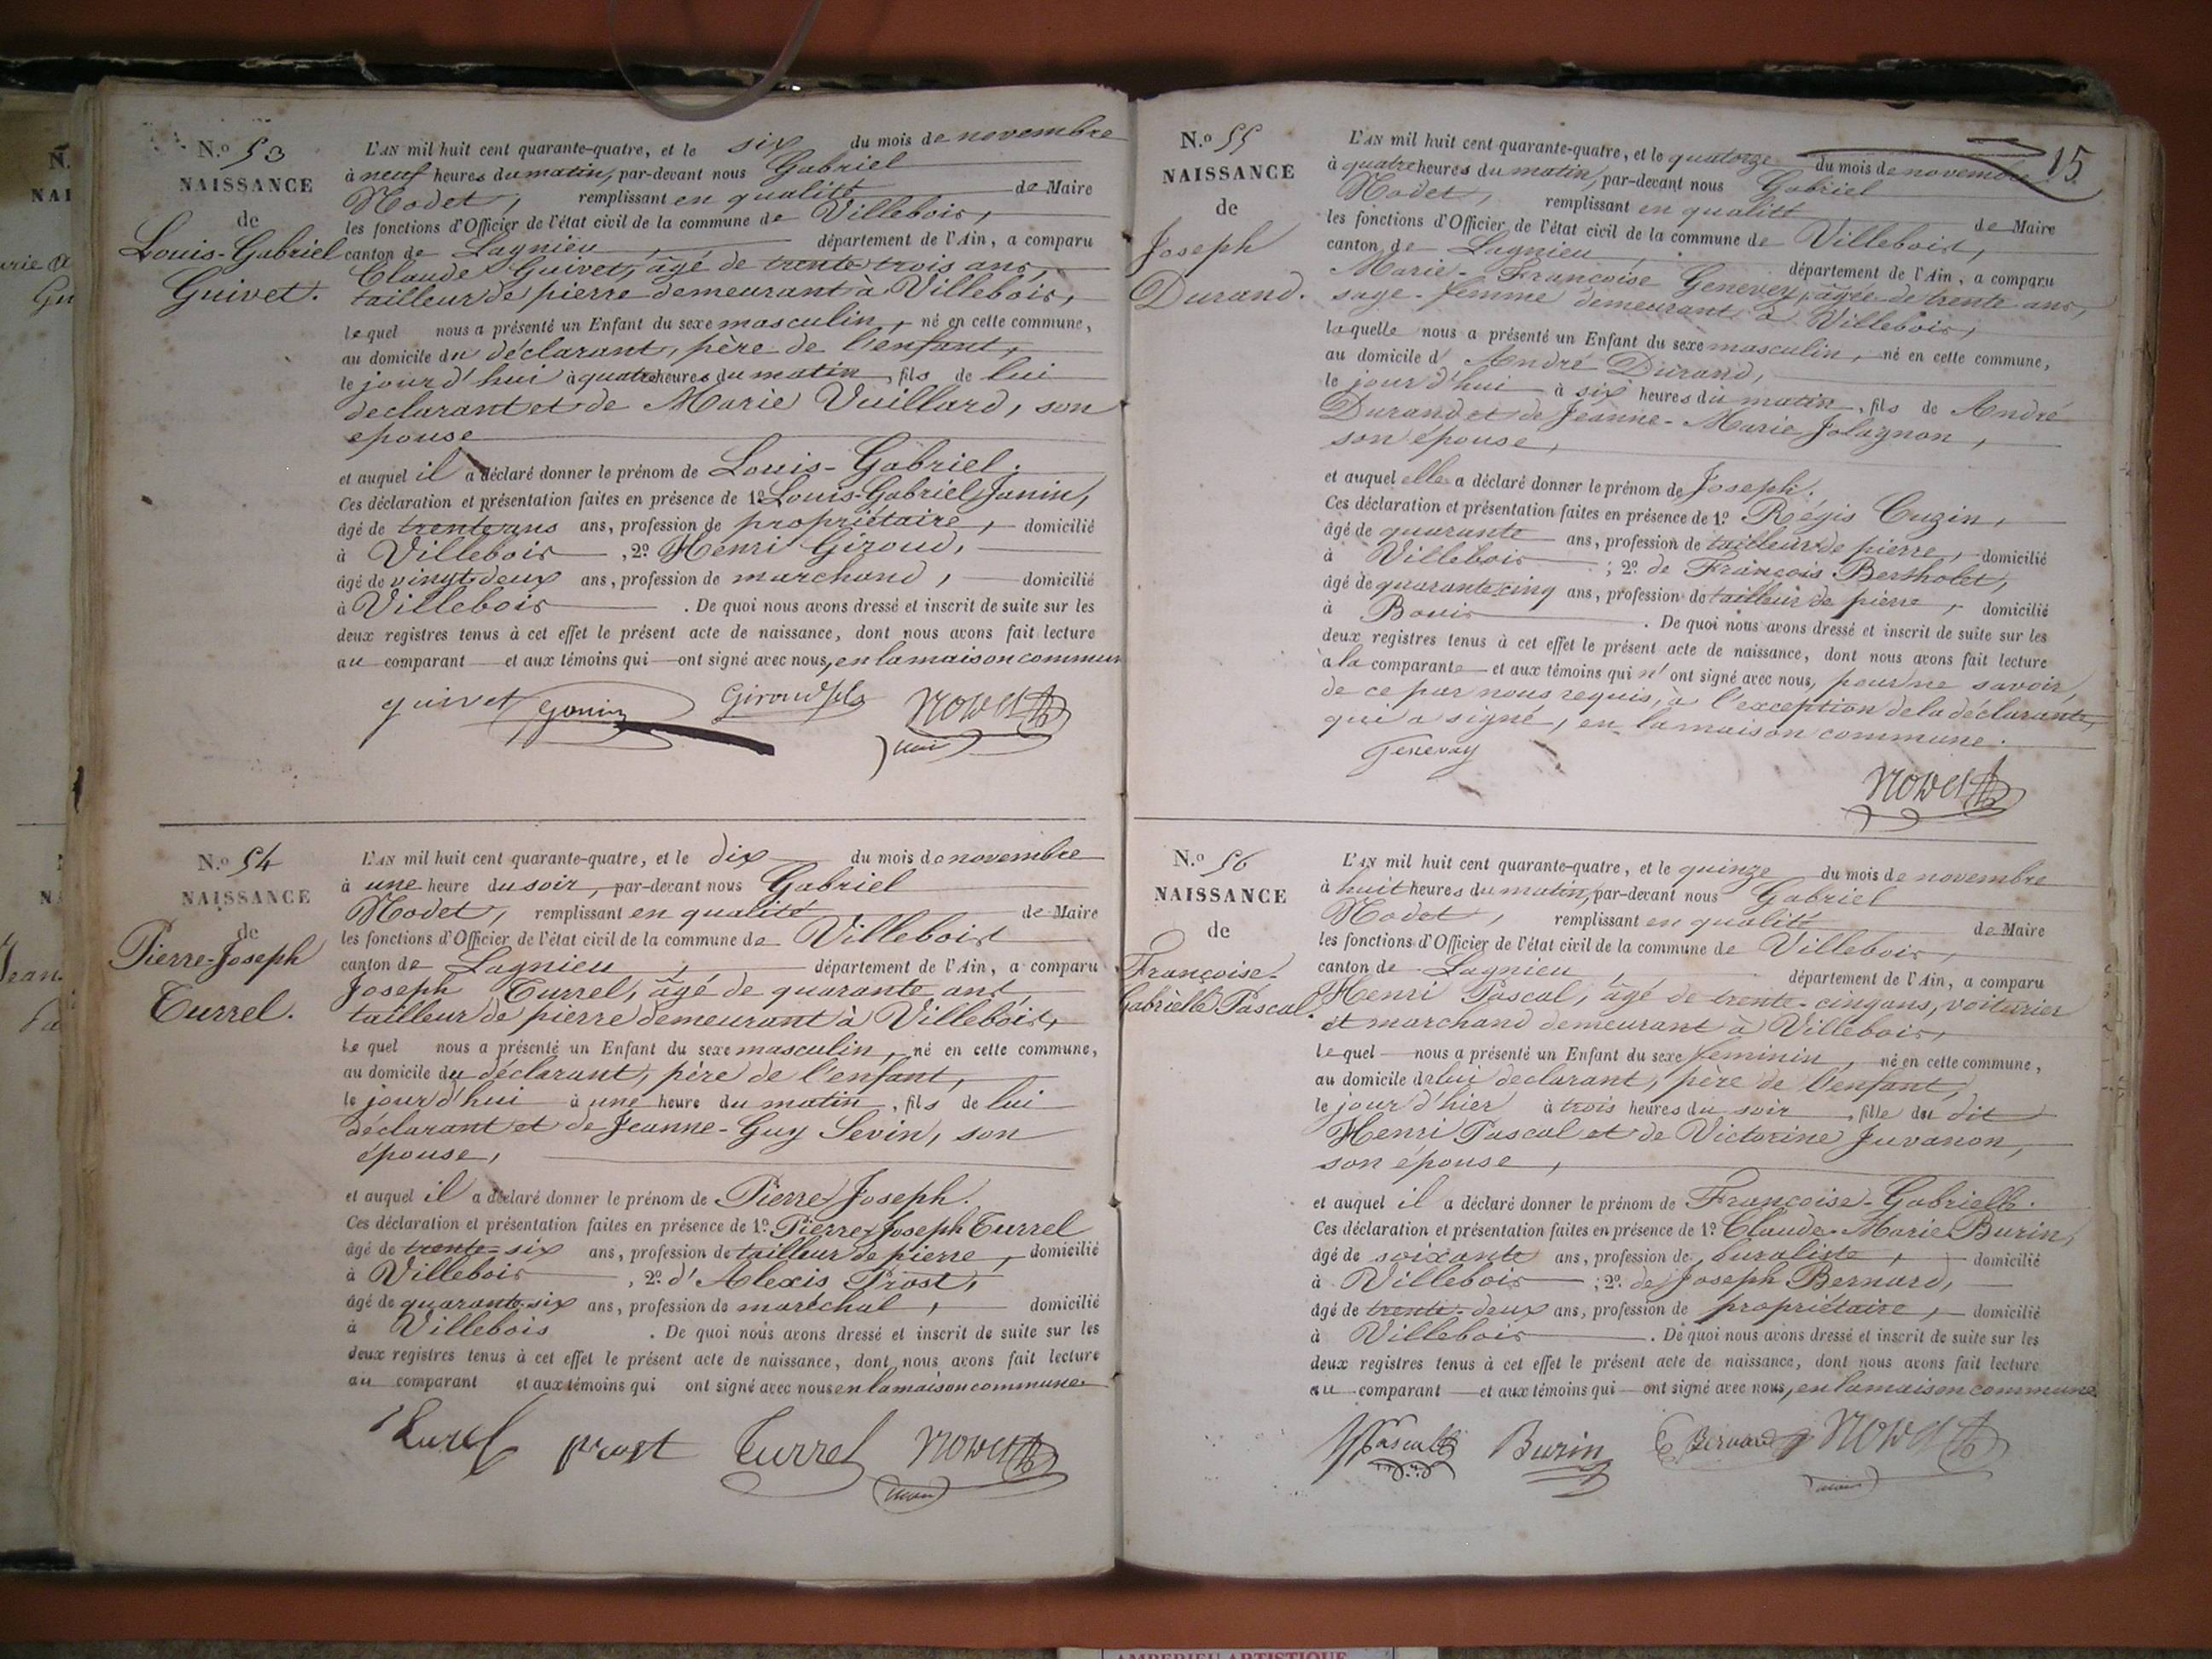 N.º 53
NAISSANCE
de
Louis-Gabriel
Guivet.
L'AN mil huit cent quarante-quatre, et le six du mois de novembre
à neuf heures du matin, par-devant nous Gabriel
Nodet, remplissant en qualité de Maire
les fonctions d'Officier de l'état civil de la commune de Villebois,
canton de Lagnieu, département de l'Ain, a comparu
Claude Guivet, âgé de trente trois ans,
tailleur de pierre demeurant à Villebois,
lequel nous a présenté un Enfant du sexe masculin, né en cette commune,
au domicile du déclarant, père de l'enfant,
le jour d'hui à quatre heures du matin, fils de lui
declarant et de Marie Vuillard, son
epouse
et auquel il a déclaré donner le prénom de Louis-Gabriel.
Ces déclaration et présentation faites en présence de 1º Louis-Gabriel Janin,
âgé de trente ans, profession de propriétaire, domicilié
à Villebois, 2º Henri Giroud,
âgé de vingt-deux ans, profession de marchand, domicilié
à Villebois. De quoi nous avons dressé et inscrit de suite sur les
deux registres tenus à cet effet le présent acte de naissance, dont nous avons fait lecture
au comparant et aux témoins qui ont signé avec nous, en la maison commun
guivet Janin Giroud fils Nodet
N.º 54
NAISSANCE
de
Pierre-Joseph
Turrel.
L'AN mil huit cent quarante-quatre, et le dix du mois de novembre
à une heure du soir, par-devant nous Gabriel
Nodet, remplissant en qualité de Maire
les fonctions d'Officier de l'état civil de la commune de Villebois
canton de Lagnieu, département de l'Ain, a comparu
Joseph Turrel, âgé de quarante ans,
tailleur de pierre demeurant à Villebois,
lequel nous a présenté un Enfant du sexe masculin, né en cette commune,
au domicile du déclarant, père de l'enfant,
le jour d'hui à une heure du matin, fils de lui
déclarant et de Jeanne-Guy Sevin, son
épouse,
et auquel il a déclaré donner le prénom de Pierre Joseph.
Ces déclaration et présentation faites en présence de 1º Pierre Joseph Turrel
âgé de trente-six ans, profession de tailleur de pierre, domicilié
à Villebois, 2º d'Alexis Prost,
âgé de quarante-six ans, profession de maréchal, domicilié
à Villebois. De quoi nous avons dressé et inscrit de suite sur les
deux registres tenus à cet effet le présent acte de naissance, dont nous avons fait lecture
au comparant et aux témoins qui ont signé avec nous en la maison commune
Turrel prost Turrel Nodet
15
N.º 55
NAISSANCE
de
Joseph
Durand.
L'AN mil huit cent quarante-quatre, et le quatorze du mois de novembre
à quatre heures du matin, par-devant nous Gabriel
Nodet, remplissant en qualité de Maire
les fonctions d'Officier de l'état civil de la commune de Villebois,
canton de Lagnieu, département de l'Ain, a comparu
Marie-Françoise Genevey, âgée de trente ans,
sage-femme demeurant à Villebois,
laquelle nous a présenté un Enfant du sexe masculin, né en cette commune,
au domicile d'André Durand,
le jour d'hui à six heures du matin, fils de André
Durand et de Jeanne-Marie Jolagnon,
son épouse,
et auquel elle a déclaré donner le prénom de Joseph.
Ces déclaration et présentation faites en présence de 1º Régis Cuzin,
âgé de quarante ans, profession de tailleur de pierre, domicilié
à Villebois; 2º de François Bertholet,
âgé de quarante cinq ans, profession de tailleur de pierre, domicilié
à Bouis. De quoi nous avons dressé et inscrit de suite sur les
deux registres tenus à cet effet le présent acte de naissance, dont nous avons fait lecture
à la comparante et aux témoins qui n'ont signé avec nous, pour ne savoir,
de ce par nous requis, à l'exception de la déclarante,
qui a signé, en la maison commune.
Genevay
Nodet
N.º 56
NAISSANCE
de
Françoise-
Gabrielle Pascal.
L'AN mil huit cent quarante-quatre, et le quinze du mois de novembre
à huit heures du matin, par-devant nous Gabriel
Nodet, remplissant en qualité de Maire
les fonctions d'Officier de l'état civil de la commune de Villebois,
canton de Lagnieu, département de l'Ain, a comparu
Henri Pascal, âgé de trente-cinq ans, voiturier
et marchand demeurant à Villebois,
lequel nous a présenté un Enfant du sexe feminin, né en cette commune,
au domicile de lui declarant, père de l'enfant,
le jour d'hier à trois heures du soir, fille du dit
Henri Pascal et de Victorine Juvanon,
son épouse,
et auquel il a déclaré donner le prénom de Françoise-Gabrielle.
Ces déclaration et présentation faites en présence de 1º Claude-Marie Burin,
âgé de soixante ans, profession de buraliste, domicilié
à Villebois; 2º de Joseph Bernard,
âgé de trente-deux ans, profession de propriétaire, domicilié
à Villebois. De quoi nous avons dressé et inscrit de suite sur les
deux registres tenus à cet effet le présent acte de naissance, dont nous avons fait lecture
au comparant et aux témoins qui ont signé avec nous, en la maison commune
Pascal Burin Bernard Nodet